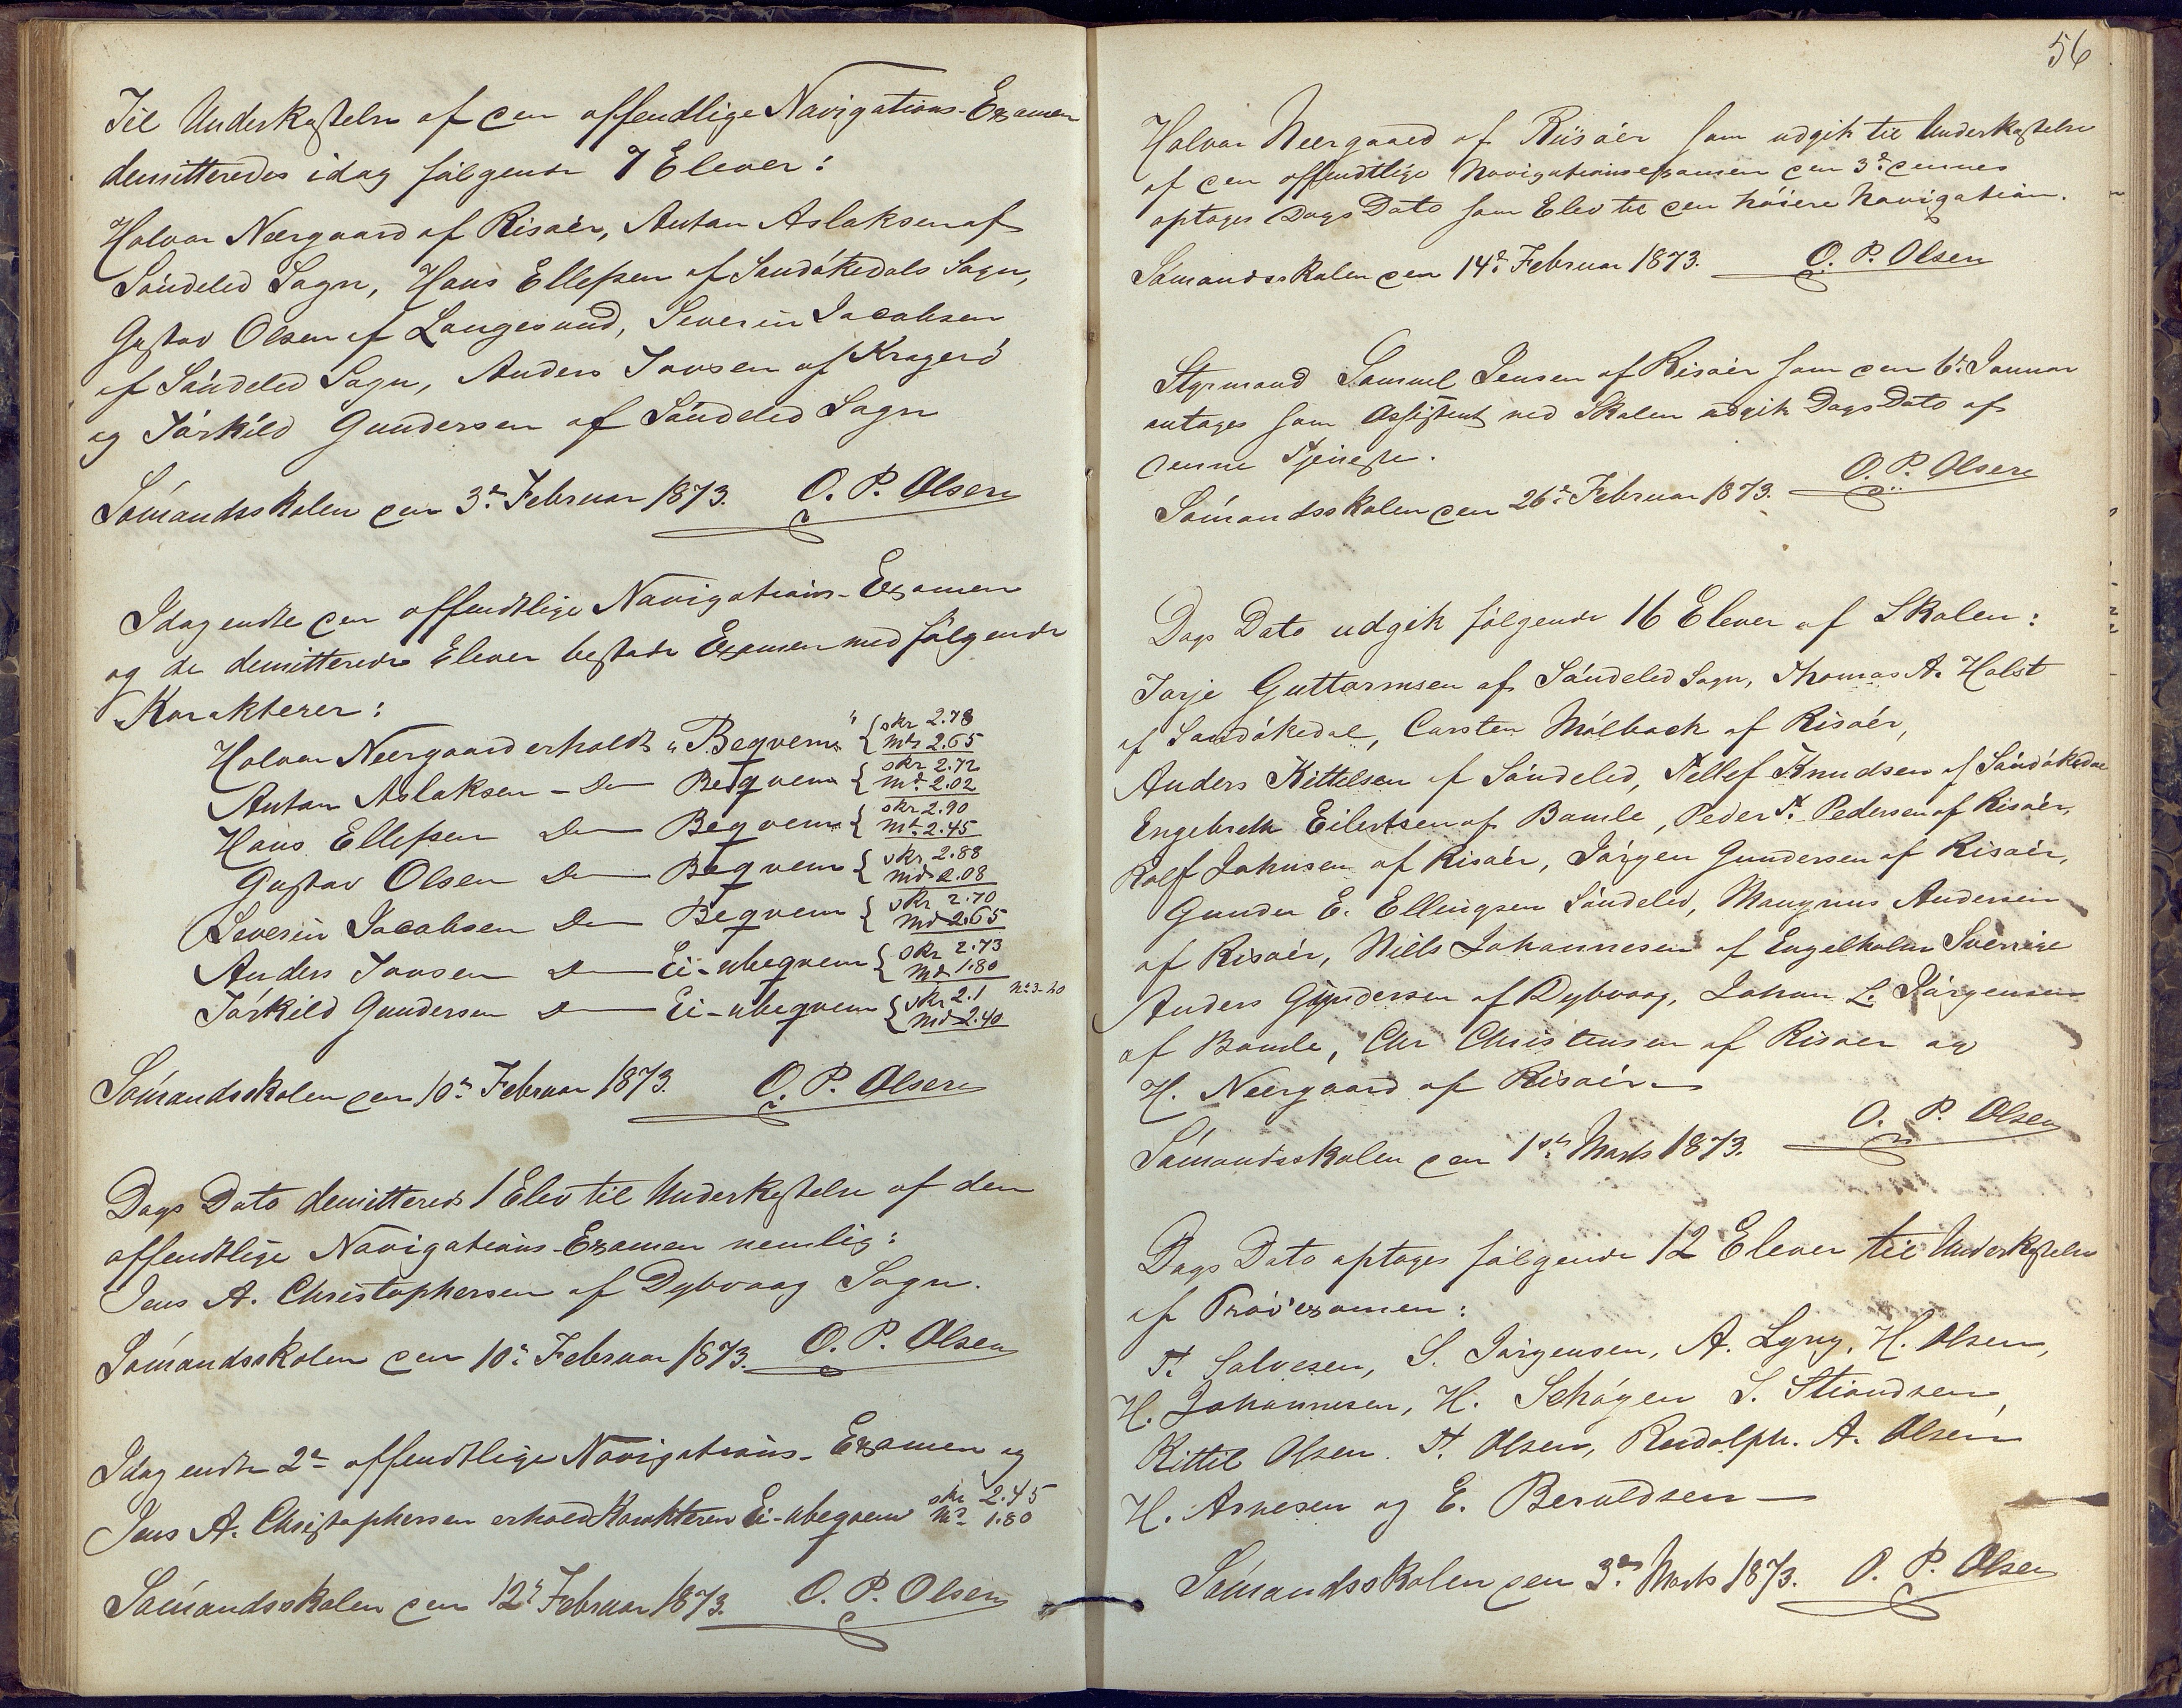 Til Underkastelse af den offendtlige Navigations-Examen
demitteredes idag følgende 7 Elever:
Halvor Neergaard af Risøer, Anton Aslaksen af
Søndeled Sogn, Hans Ellefsen af Sandøkedals Sogn,
Gustav Olsen af Langesund, Severin Jacobsen
af Søndeled Sogn, Anders Jonsen af Kragerø
og Tórkild Gundersen af Søndeled Sogn
Sømandsskolen den 3die Februar 1873. O. P. Olsen
Idag endte den offendtlige Navigations-Examen
og de demitterede Elever bestode Examen med følgende
Karakterer:
Halvor Neergaard erholdt „Beqvem" { skr 2.78 mdt 2.65
Anton Aslaksen - Do Beqvem { skr 2.72 mdt 2.02
Hans Ellefsen Do Beqvem { skr 2.90 mdt 2.45
Gustav Olsen Do Beqvem { skr 2.88 mdt 2.08
Severin Jacobsen Do Beqvem { skr 2.70 mdt 2.65
Anders Jonsen Do Ei-ubeqvem { skr 2.73 mdt 1.80
Tórkild Gundersen Do Ei-ubeqvem { skr 2.1 mdt 2.40
Sømandsskolen den 10de Februar 1873. O. P. Olsen
Dags Dato demitteredes 1 Elev til Underkastelse af den
offendtlige Navigations-Examen nemlig:
Jens A. Christophersen af Dybvaag Sogn.
Sømandsskolen den 10de Februar 1873. O. P. Olsen
Idag endte 2den offendtlige Navigations-Examen og
Jens A. Christophersen erholdt Karakteren Ei-ubeqvem skr 2.45 mdt 1.80
Sømandsskolen den 12te Februar 1873. O. P. Olsen
56
Halvor Neergaard af Riisøer som udgik til Underkastelse
af den offendtlige Navigationsexamen den 3die dennes
optoges Dags Dato som Elev til den høiere Navigation.
Sømandsskolen den 14de Februar 1873. O. P. Olsen
Styrmand Samuel Jensen af Risøer som den 6te Januar
antoges som Assistent ved Skolen udgik Dags Dato af
denne Tjeneste.
Sømandsskolen den 26de Februar 1873. O. P. Olsen
Dags Dato udgik følgende 16 Elever af Skolen:
Tarje Guttormsen af Søndeled Sogn, Thomas A. Holst
af Sandøkedal, Carsten Mølback af Risøer,
Anders Kittelsen af Søndeled, Tellef Knudsen af Sandøkedal
Engebreth Eilertsen af Bamle, Peder T. Pedersen af Risøer,
Rolf Johnsen af Risøer, Jørgen Gundersen af Risøer,
Gunder E. Ellingsen Søndeled, Mangnus Andersen
af Risøer, Niels Johannesen af Engelholm Sverrige
Anders Gundersen af Dybvaag, Johan L. Jørgensen
af Bamle, Chr Christensen af Risøer og
H. Neergaard af Risøer.
Sømandsskolen den 1ste Marts 1873. O. P. Olsen
Dags Dato optoges følgende 12 Elever til Underkastelse
af Prøvexamen:
T. Salvesen, S. Jørgensen, A. Lyng, H. Olsen,
H. Johannesen, H. Schøgen S. Stiandsen,
Kittil Olsen. T. Olsen, Rudolph. A. Olsen
H. Arnesen og E. Beruldsen —
Sømandsskolen den 3die Marts 1873. O. P. Olsen